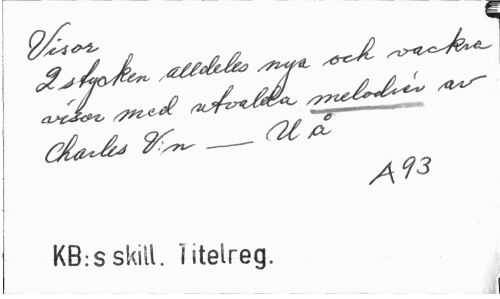 Visor
2 stycken alldeles nya och vackra
visor med utvalda melodier av
Charles V:n — U å
A 93
KB:s skill. Titelreg.